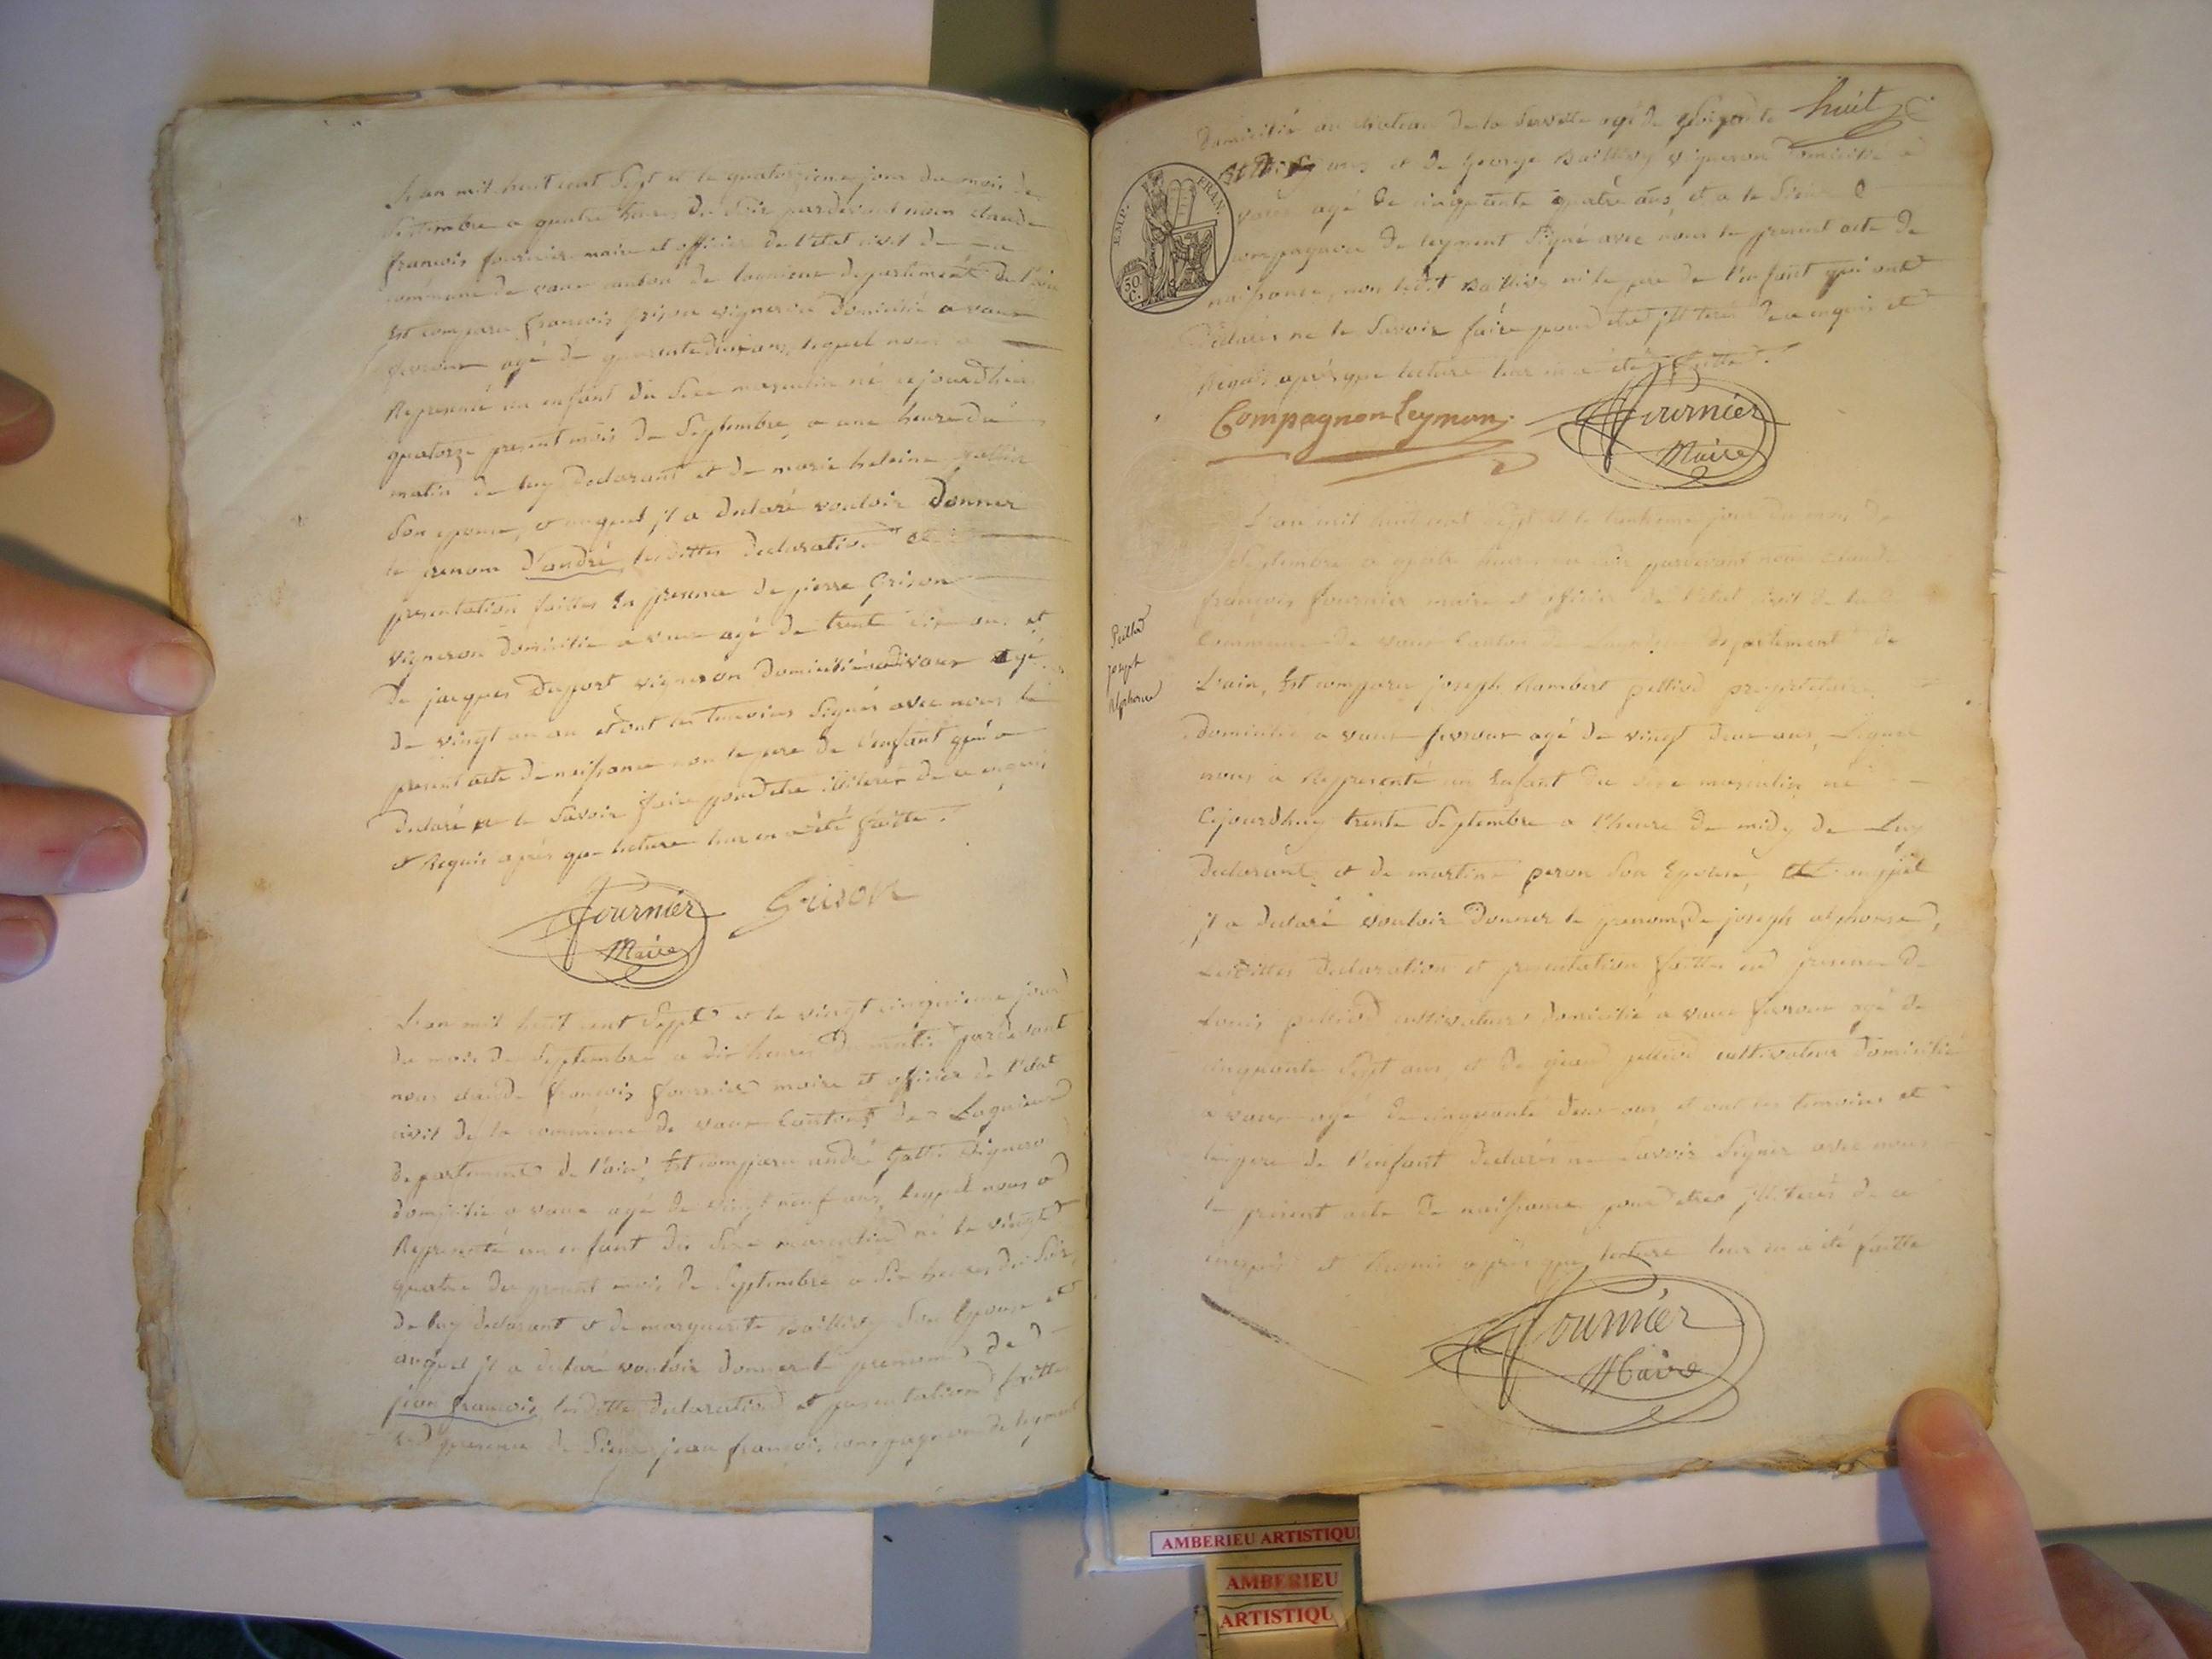 L'an mil huit cent Sept et le quatorzieme jour du mois de
Septembre a quatre heures du Soir pardevant nous claude
françois fournier maire et officier de l'état civil de la
commune de vaux canton de lagnieux departement de l'ain
Est comparu françois grison vigneron domicilié a vaux
fevroux agé de quarente deux ans, lequel nous a
Représenté un enfant du Sexe masculin né cejourdhui
quatorze present mois de Septembre, a une heure du
matin de luy Declarant et de marie heleine
Son epouse, et auquel jl a Declaré vouloir Donner
le prenom D'andré, lesdittes declaration et
presentation faittes En presence de pierre Grison
vigneron domicilié a vaux agé de trente six ans et
De jacques Duport vigneron Domicilié audit vaux agé
De vingt un an et ont les temoins Signés avec nous le
present acte de naissance non le pere de l'enfant qui a
Declaré ne le Savoir faire pour etre illiteré de ce enquis
et Requis après que lecture leur en a été faitte.
Fournier Grison
Maire
L'an mil huit cent Sept et le vingt cinquieme jour
du mois de Septembre a dix heures du matin pardevant
nous claude françois fournier maire et officier de l'état
civil de la commune de vaux Canton de Lagnieux
departement de l'ain, Est comparu andré Gatti vigneron
domicilié a vaux agé de vingt neuf ans, lequel nous a
Représenté un enfant du Sexe masculin né le vingt
quatre du present mois de Septembre a Six heures du Soir,
de luy declarant et de marguerite Baillivy Son Epouse et
auquel jl a declaré vouloir donner le prenom de
jean françois, lesdittes declaration et presentation faittes
en presence de Sieur jean françois compagnon de leyment
huit
Domicilié au chateau De la Servette agé de Soixante
ans et de George Baillivy vigneron Domicilié a
vaux agé De cinquante quatre ans, et a le Sieur
compagnon De leyment Signé avec nous le present acte de
naissance, non ledit Baillivy ni le pere de l'enfant qui ont
Déclarés ne le Savoir faire pour etre jlliterés de ce enquis et
Requis après que lecture leur en a été faitte.
EMP. FRAN.
50 C.
Compagnon Leyment Fournier
Maire
L'an mil huit cent Sept et le trentieme jour du mois de
Septembre a quatre heures du Soir pardevant nous claude
françois fournier maire et officier de l'état civil de la
Commune de vaux Canton de Lagnieux departement de
L'ain, Est comparu joseph Rambert pellivd proprietaire
Domicilié a vaux fevroux agé de vingt deux ans, Lequel
nous a Représenté un Enfant du Sexe masculin né
Cejourdhuy trente Septembre a l'heure de midy de Luy
Declarant, et de martine peron Son Epouse, et auquel
jl a declaré vouloir Donner le prenom de joseph alphonse,
Lesdittes declaration et presentation faittes en presence de
Louis cultivateur domicilié a vaux fevroux agé de
cinquante Sept ans, et de jean cultivateur Domicilié
a vaux agé de cinquante deux ans, et ont les temoins et
le pere de l'enfant declarés ne savoir Signer avec nous
le present acte de naissance pour etre jlliterés de ce
enquis et Requis après que lecture leur en a été faitte
joseph
Alphonse
Fournier
Maire
AMBERIEU ARTISTIQU
AMBERIEU
ARTISTIQU